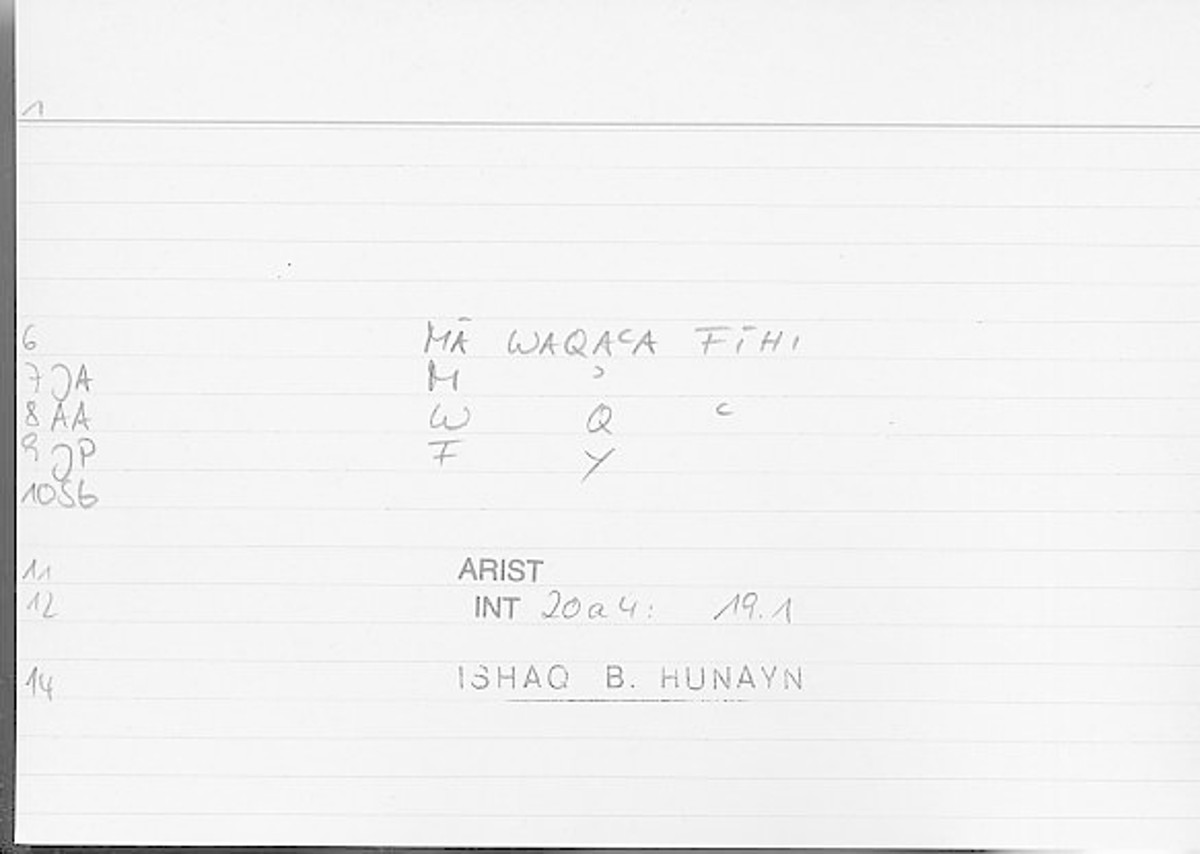 1
6 MĀ WAQAʿA FĪHI
7 JA M ʾ
8 AA W Q ʿ
9 JP F Y
10 SG
11 ARIST
12 INT 20a4: 19.1
14 ISHAQ B. HUNAYN